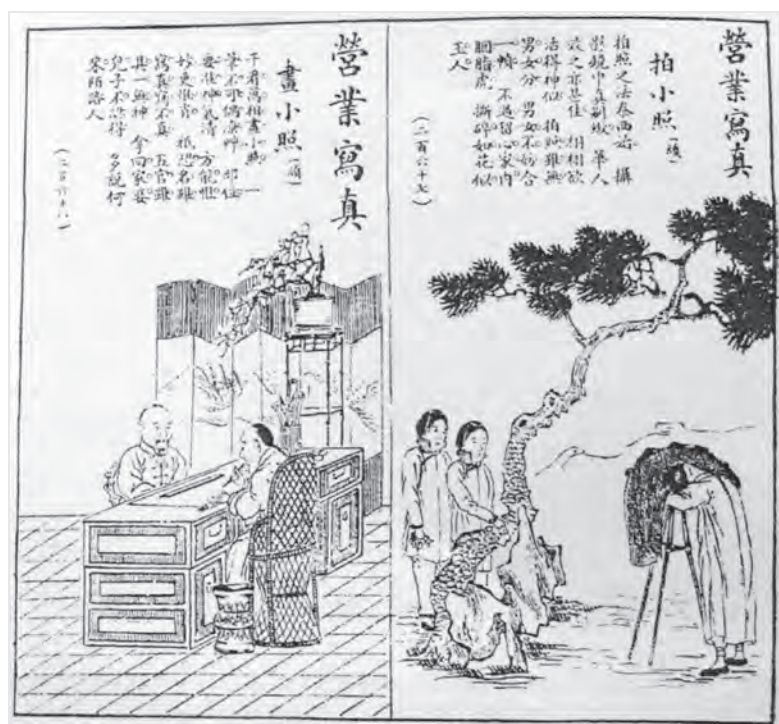 營業寫真
拍小照
拍照之法泰西始 攝
影鏡中真別致 華人
效之亦甚佳 栩栩欲
活得神似 拍照雖無
男女分 男女不妨合
一幀 不過留心家內
胭脂虎 撕碎如花似
玉人
(二百六十七)
營業寫真
畫小照
千看萬相畫小照 一
筆不可偶潦艸 位
要准神氣清 方能惟
妙更惟肖 祇恐名雖
寫真寫不真 五官雖
具一無神 拿回家裏
兒子不認得 多說何
來陌路人
(二百六十八)